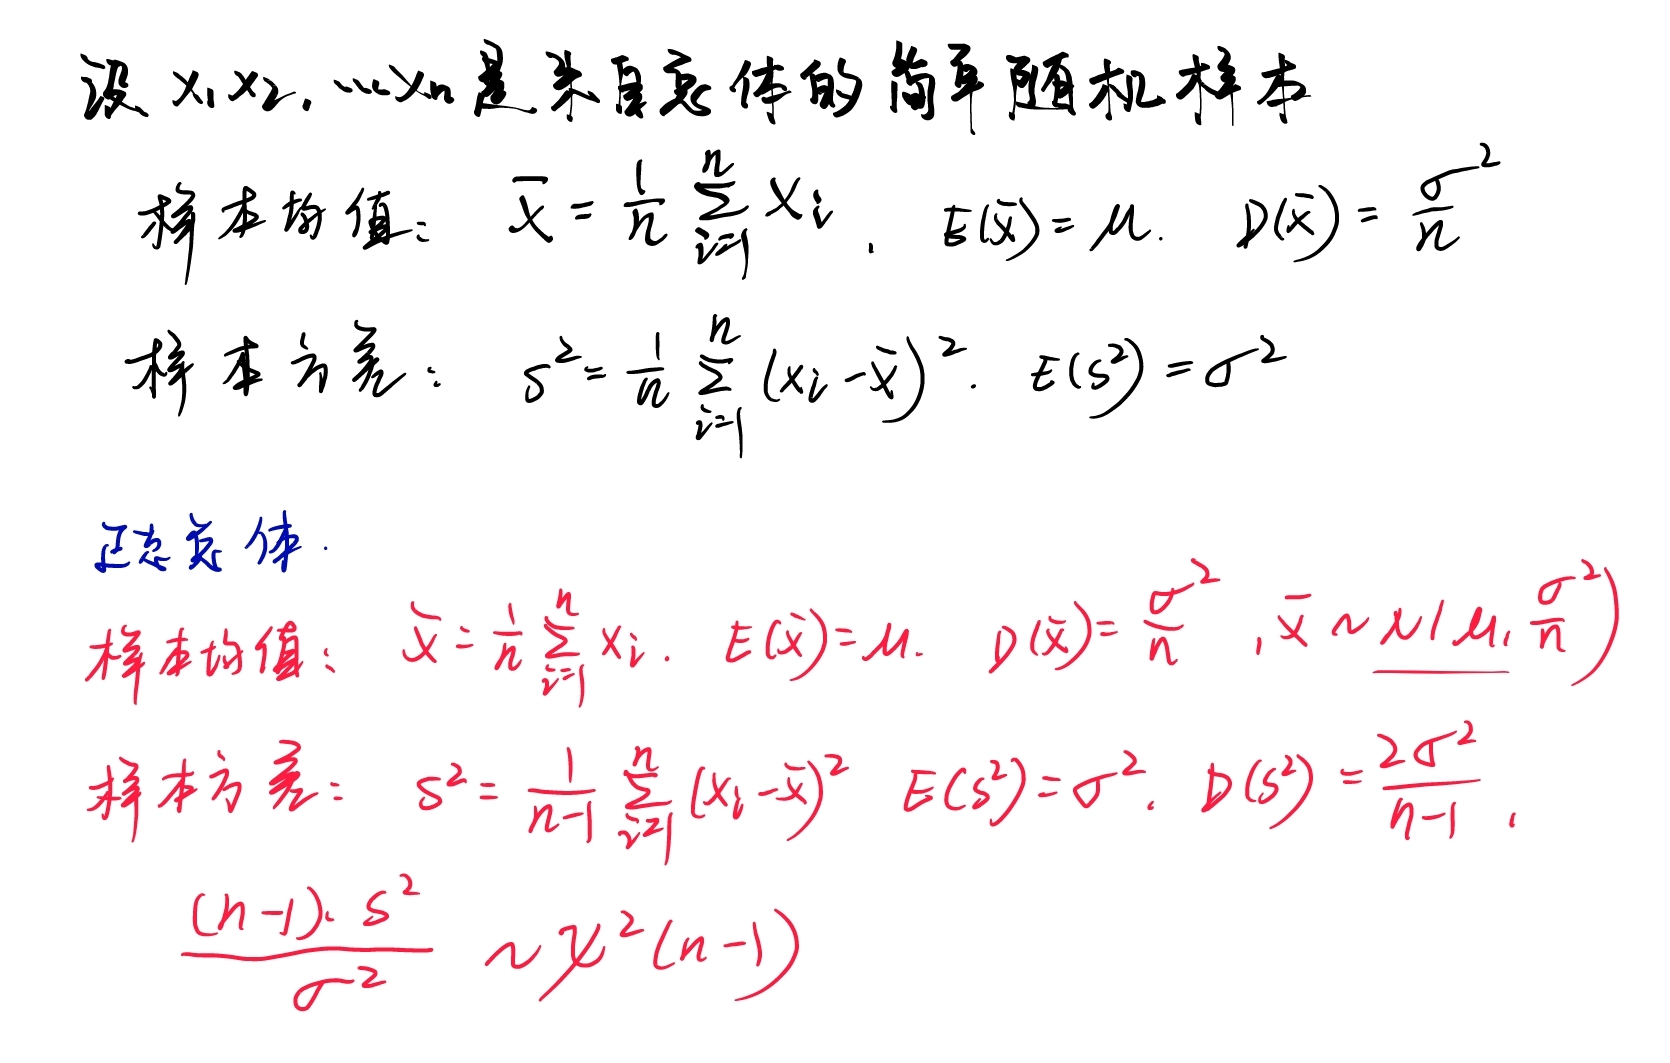 设 x₁ x₂, …xₙ 是来自总体的简单随机样本
样本均值: x̄ = 1/n ∑ᵢ₌₁ⁿ xᵢ, E(x̄) = μ. D(x̄) = σ²/n
样本方差: s² = 1/n ∑ᵢ₌₁ⁿ (xᵢ - x̄)². E(s²) = σ²
正态总体.
样本均值: x̄ = 1/n ∑ᵢ₌₁ⁿ xᵢ. E(x̄) = μ. D(x̄) = σ²/n, x̄ ~ N(μ, σ²/n)
样本方差: s² = 1/(n-1) ∑ᵢ₌₁ⁿ (xᵢ - x̄)² E(s²) = σ². D(s²) = 2σ²/(n-1),
(n-1)·s²/σ² ~ χ²(n-1)